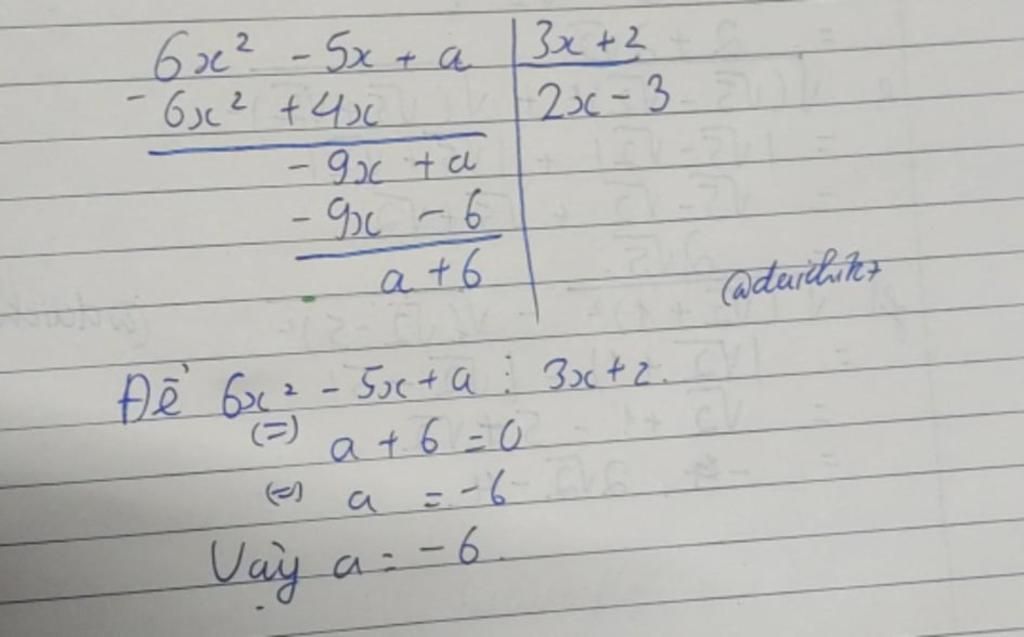 6x² - 5x + a | 3x + 2
- 6x² + 4x | 2x - 3
- 9x + a
- 9x - 6
a + 6
@daichik
Để 6x² - 5x + a ⋮ 3x + 2.
(=) a + 6 = 0
(=) a = -6
Vậy a = -6.